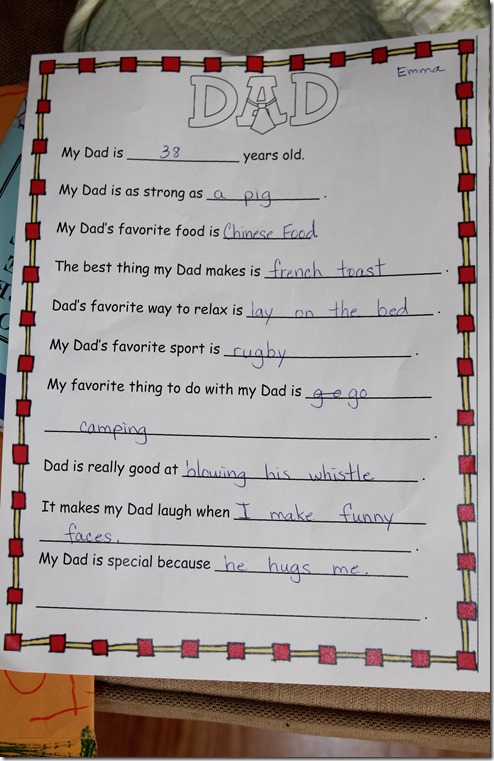 Emma
DAD
My Dad is 38 years old.
My Dad is as strong as a pig.
My Dad's favorite food is Chinese Food
The best thing my Dad makes is french toast.
Dad's favorite way to relax is lay on the bed.
My Dad's favorite sport is rugby.
My favorite thing to do with my Dad is go go
camping.
Dad is really good at blowing his whistle.
It makes my Dad laugh when I make funny
faces..
My Dad is special because he hugs me.
.